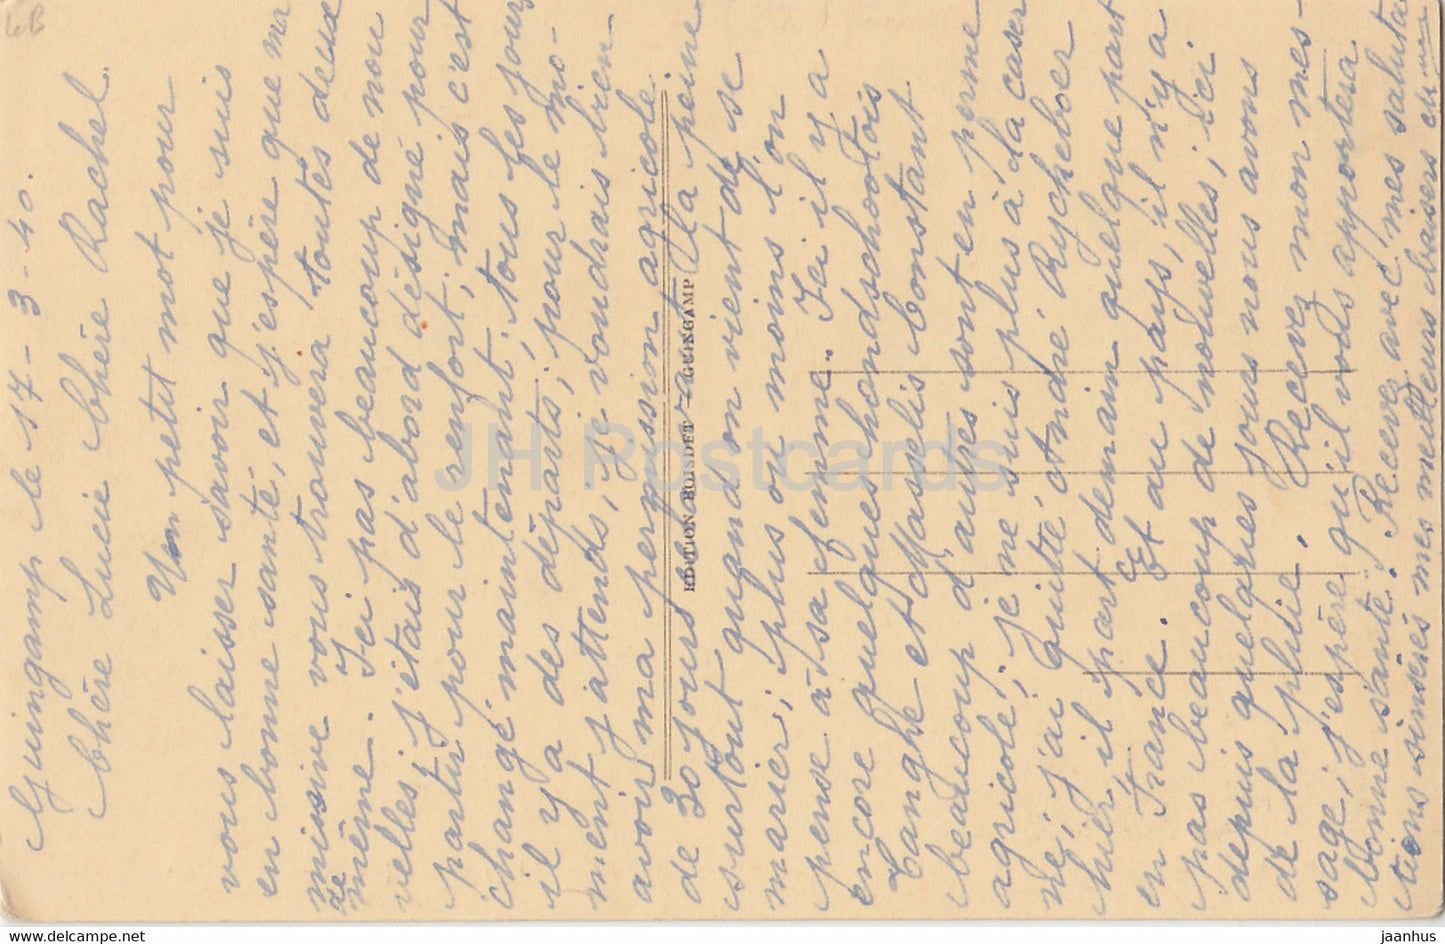 Guingamp le 17-3-40.
Chère Lucie Chère Rachel.
Un petit mot pour
vous laisser savoir que je suis
en bonne santé, et j'espère que ma
missive vous trouvera toutes deux
de même. Ici pas beaucoup de nou
velles, j'étais d'abord désigné pour
partir pour le renfort, mais c'est
changé maintenant, tous les jours
il y a des départs, pour le mo-
ment j'attends, je voudrais bien
avoir ma permission agricole
de 30 jours, la peine
surtout quand on vient de se
marier, plus ou moins l'on
pense à sa femme. Ici il y a
encore quelques hondschootois
Canghe et Masselis Constant
beaucoup d'autres sont en perme
agricole, je ne suis plus à la caser
ne, j'ai quitté André Ryckeboer
hier il part demain quelque part
en France. Et au pays, il n'y a
pas beaucoup de nouvelles, ici
depuis quelques jours nous avons
de la pluie. Recevez mon mes-
sage, j'espère qu'il vous apportera
bonne santé. Recevez avec mes saluta
tions sincères mes meilleurs baisers
EDITION BOISDET - GUINGAMP
6B
JH Postcards
www.delcampe.net
jaanhus